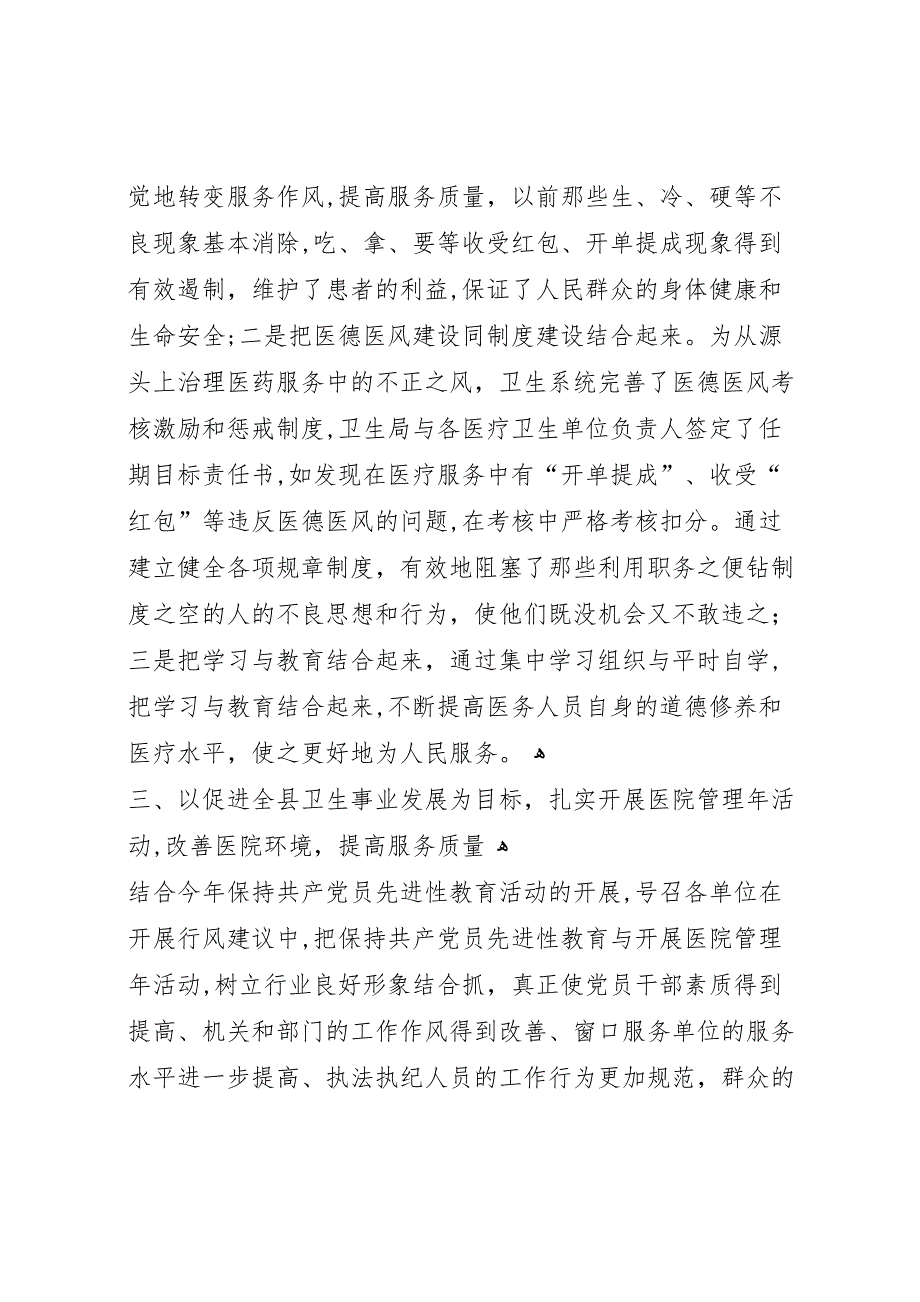 觉地转变服务作风,提高服务质量，以前那些生、冷、硬等不
良现象基本消除,吃、拿、要等收受红包、开单提成现象得到
有效遏制，维护了患者的利益,保证了人民群众的身体健康和
生命安全;二是把医德医风建设同制度建设结合起来。为从源
头上治理医药服务中的不正之风，卫生系统完善了医德医风考
核激励和惩戒制度,卫生局与各医疗卫生单位负责人签定了任
期目标责任书,如发现在医疗服务中有“开单提成”、收受“
红包”等违反医德医风的问题,在考核中严格考核扣分。通过
建立健全各项规章制度，有效地阻塞了那些利用职务之便钻制
度之空的人的不良思想和行为，使他们既没机会又不敢违之；
三是把学习与教育结合起来，通过集中学习组织与平时自学,
把学习与教育结合起来,不断提高医务人员自身的道德修养和
医疗水平，使之更好地为人民服务。 ﻫ
三、以促进全县卫生事业发展为目标，扎实开展医院管理年活
动,改善医院环境，提高服务质量 ﻫ
结合今年保持共产党员先进性教育活动的开展,号召各单位在
开展行风建议中,把保持共产党员先进性教育与开展医院管理
年活动,树立行业良好形象结合抓，真正使党员干部素质得到
提高、机关和部门的工作作风得到改善、窗口服务单位的服务
水平进一步提高、执法执纪人员的工作行为更加规范，群众的